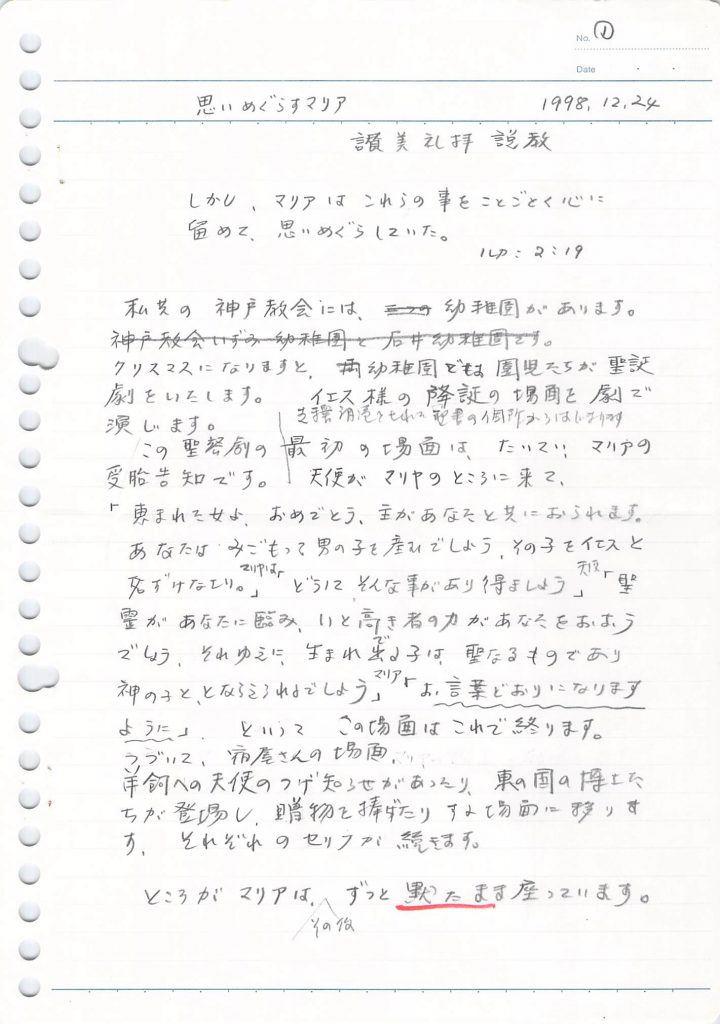 No. ①
Date
思いめぐらすマリア 1998.12.24
讃美礼拝 説教
しかし、マリアはこれらの事をことごとく心に
留めて、思いめぐらしていた。
ルカ:2:19
私共の神戸教会には、三つの幼稚園があります。
神戸教会いずみ幼稚園と石井幼稚園です。
クリスマスになりますと、両幼稚園でも園児たちが聖誕
劇をいたします。 イエス様の降誕の場面を劇で
演じます。
この聖誕劇の最初の場面は、たいてい、マリアの
受胎告知です。 天使がマリヤのところに来て、
「恵まれた女よ、おめでとう、主があなたと共におられます。
あなたはみごもって男の子を産むでしょう、その子をイエスと
名ずけなさい。」マリヤは「どうしてそんな事があり得ましょう」天使「聖
霊があなたに臨み、いと高き者の力があなたをおおう
でしょう、それゆえに、生まれ出る子は、聖なるものであり
神の子と、となえられるでしょう」マリア「お言葉どおりになります
ように」、 といって この場面はこれで終ります。
つづいて、宿屋さんの場面、
羊飼への天使のつげ知らせがあったり、東の国の博士た
ちが登場し、贈物を捧げたりする場面に移りま
す、それぞれのセリフが続きます。
ところがマリアは、その後 ずっと黙ったまま座っています。